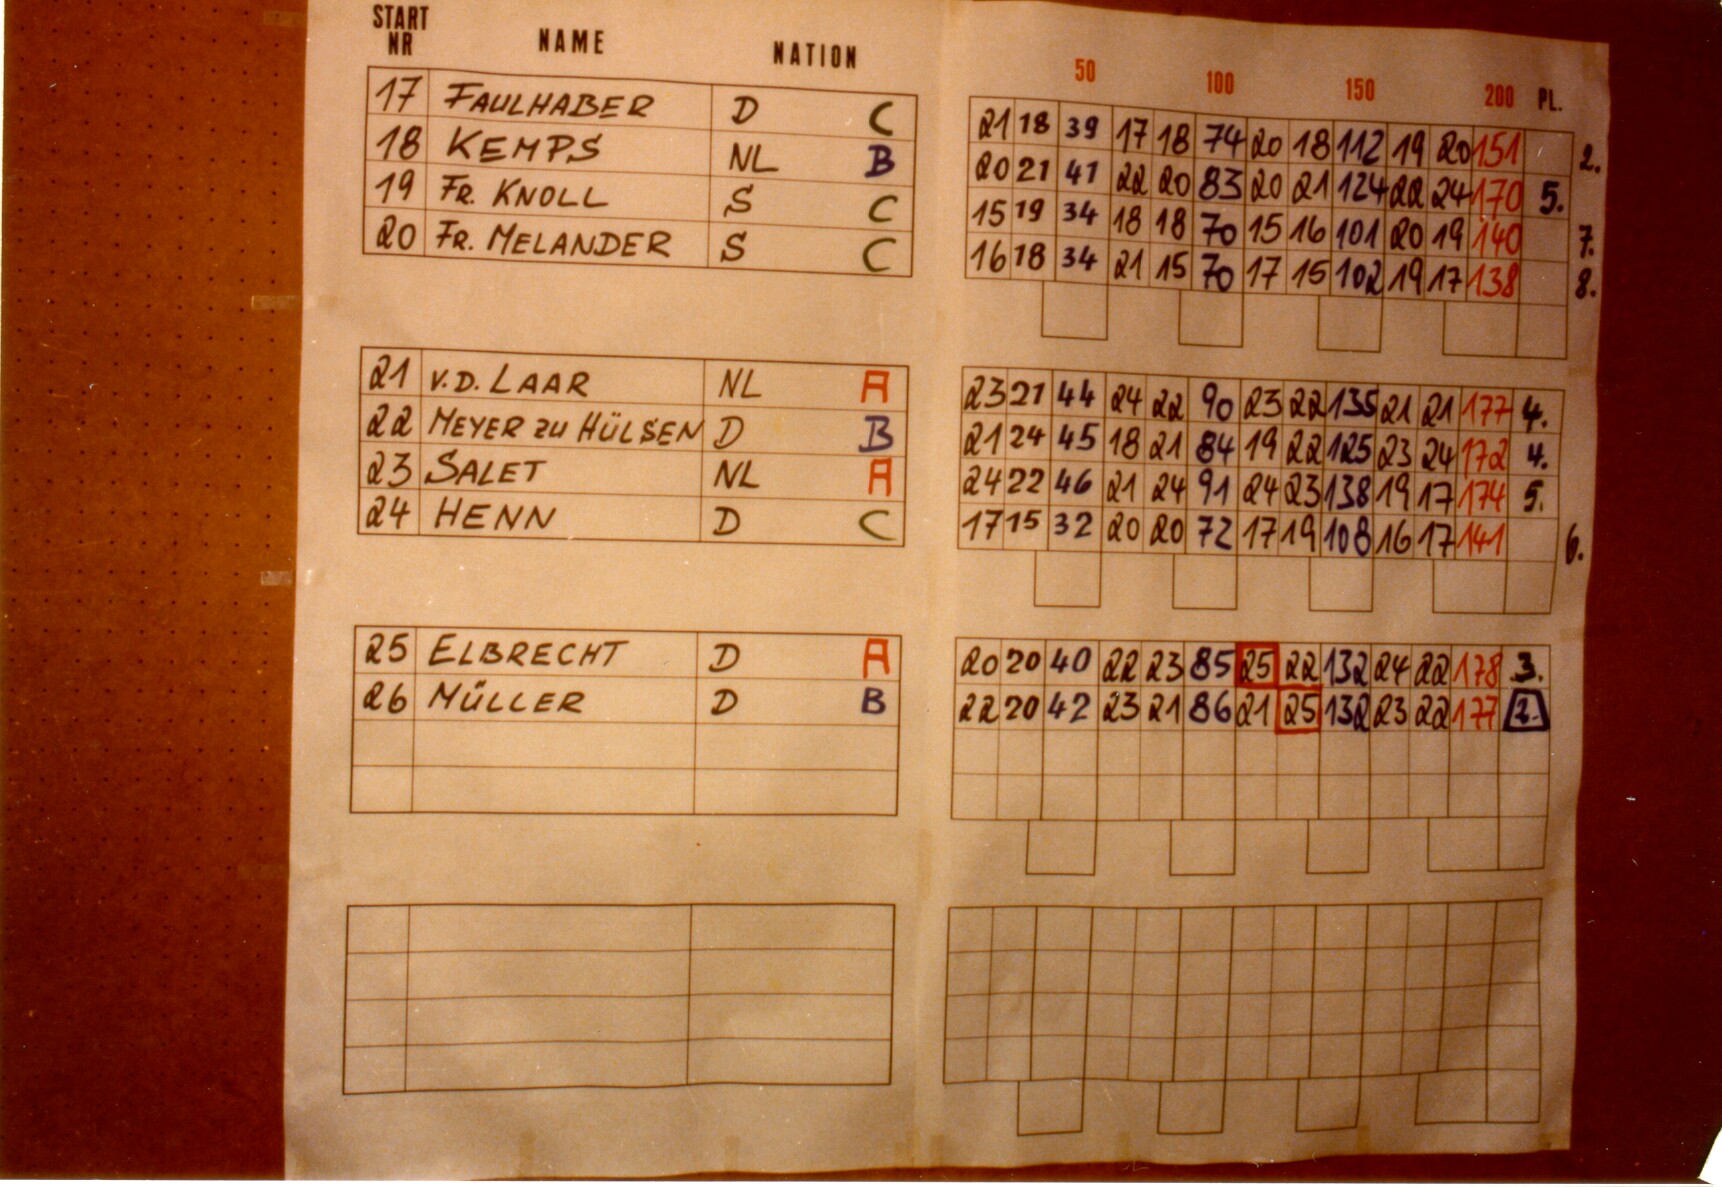 START NR NAME NATION 50 100 150 200 PL.
17 FAULHABER D C 21 18 39 17 18 74 20 18 112 19 20 151 2.
18 KEMPS NL B 20 21 41 22 20 83 20 21 124 22 24 170 5.
19 FR. KNOLL S C 15 19 34 18 18 70 15 16 101 20 19 140 7.
20 FR. MELANDER S C 16 18 34 21 15 70 17 15 102 19 17 138 8.
21 V.D. LAAR NL A 23 21 44 24 22 90 23 22 135 21 21 177 4.
22 MEYER ZU HÜLSEN D B 21 24 45 18 21 84 19 22 125 23 24 172 4.
23 SALET NL A 24 22 46 21 24 91 24 23 138 19 17 174 5.
24 HENN D C 17 15 32 20 20 72 17 19 108 16 17 141 6.
25 ELBRECHT D A 20 20 40 22 23 85 25 22 132 24 22 178 3.
26 MÜLLER D B 22 20 42 23 21 86 21 25 132 23 22 177 2.